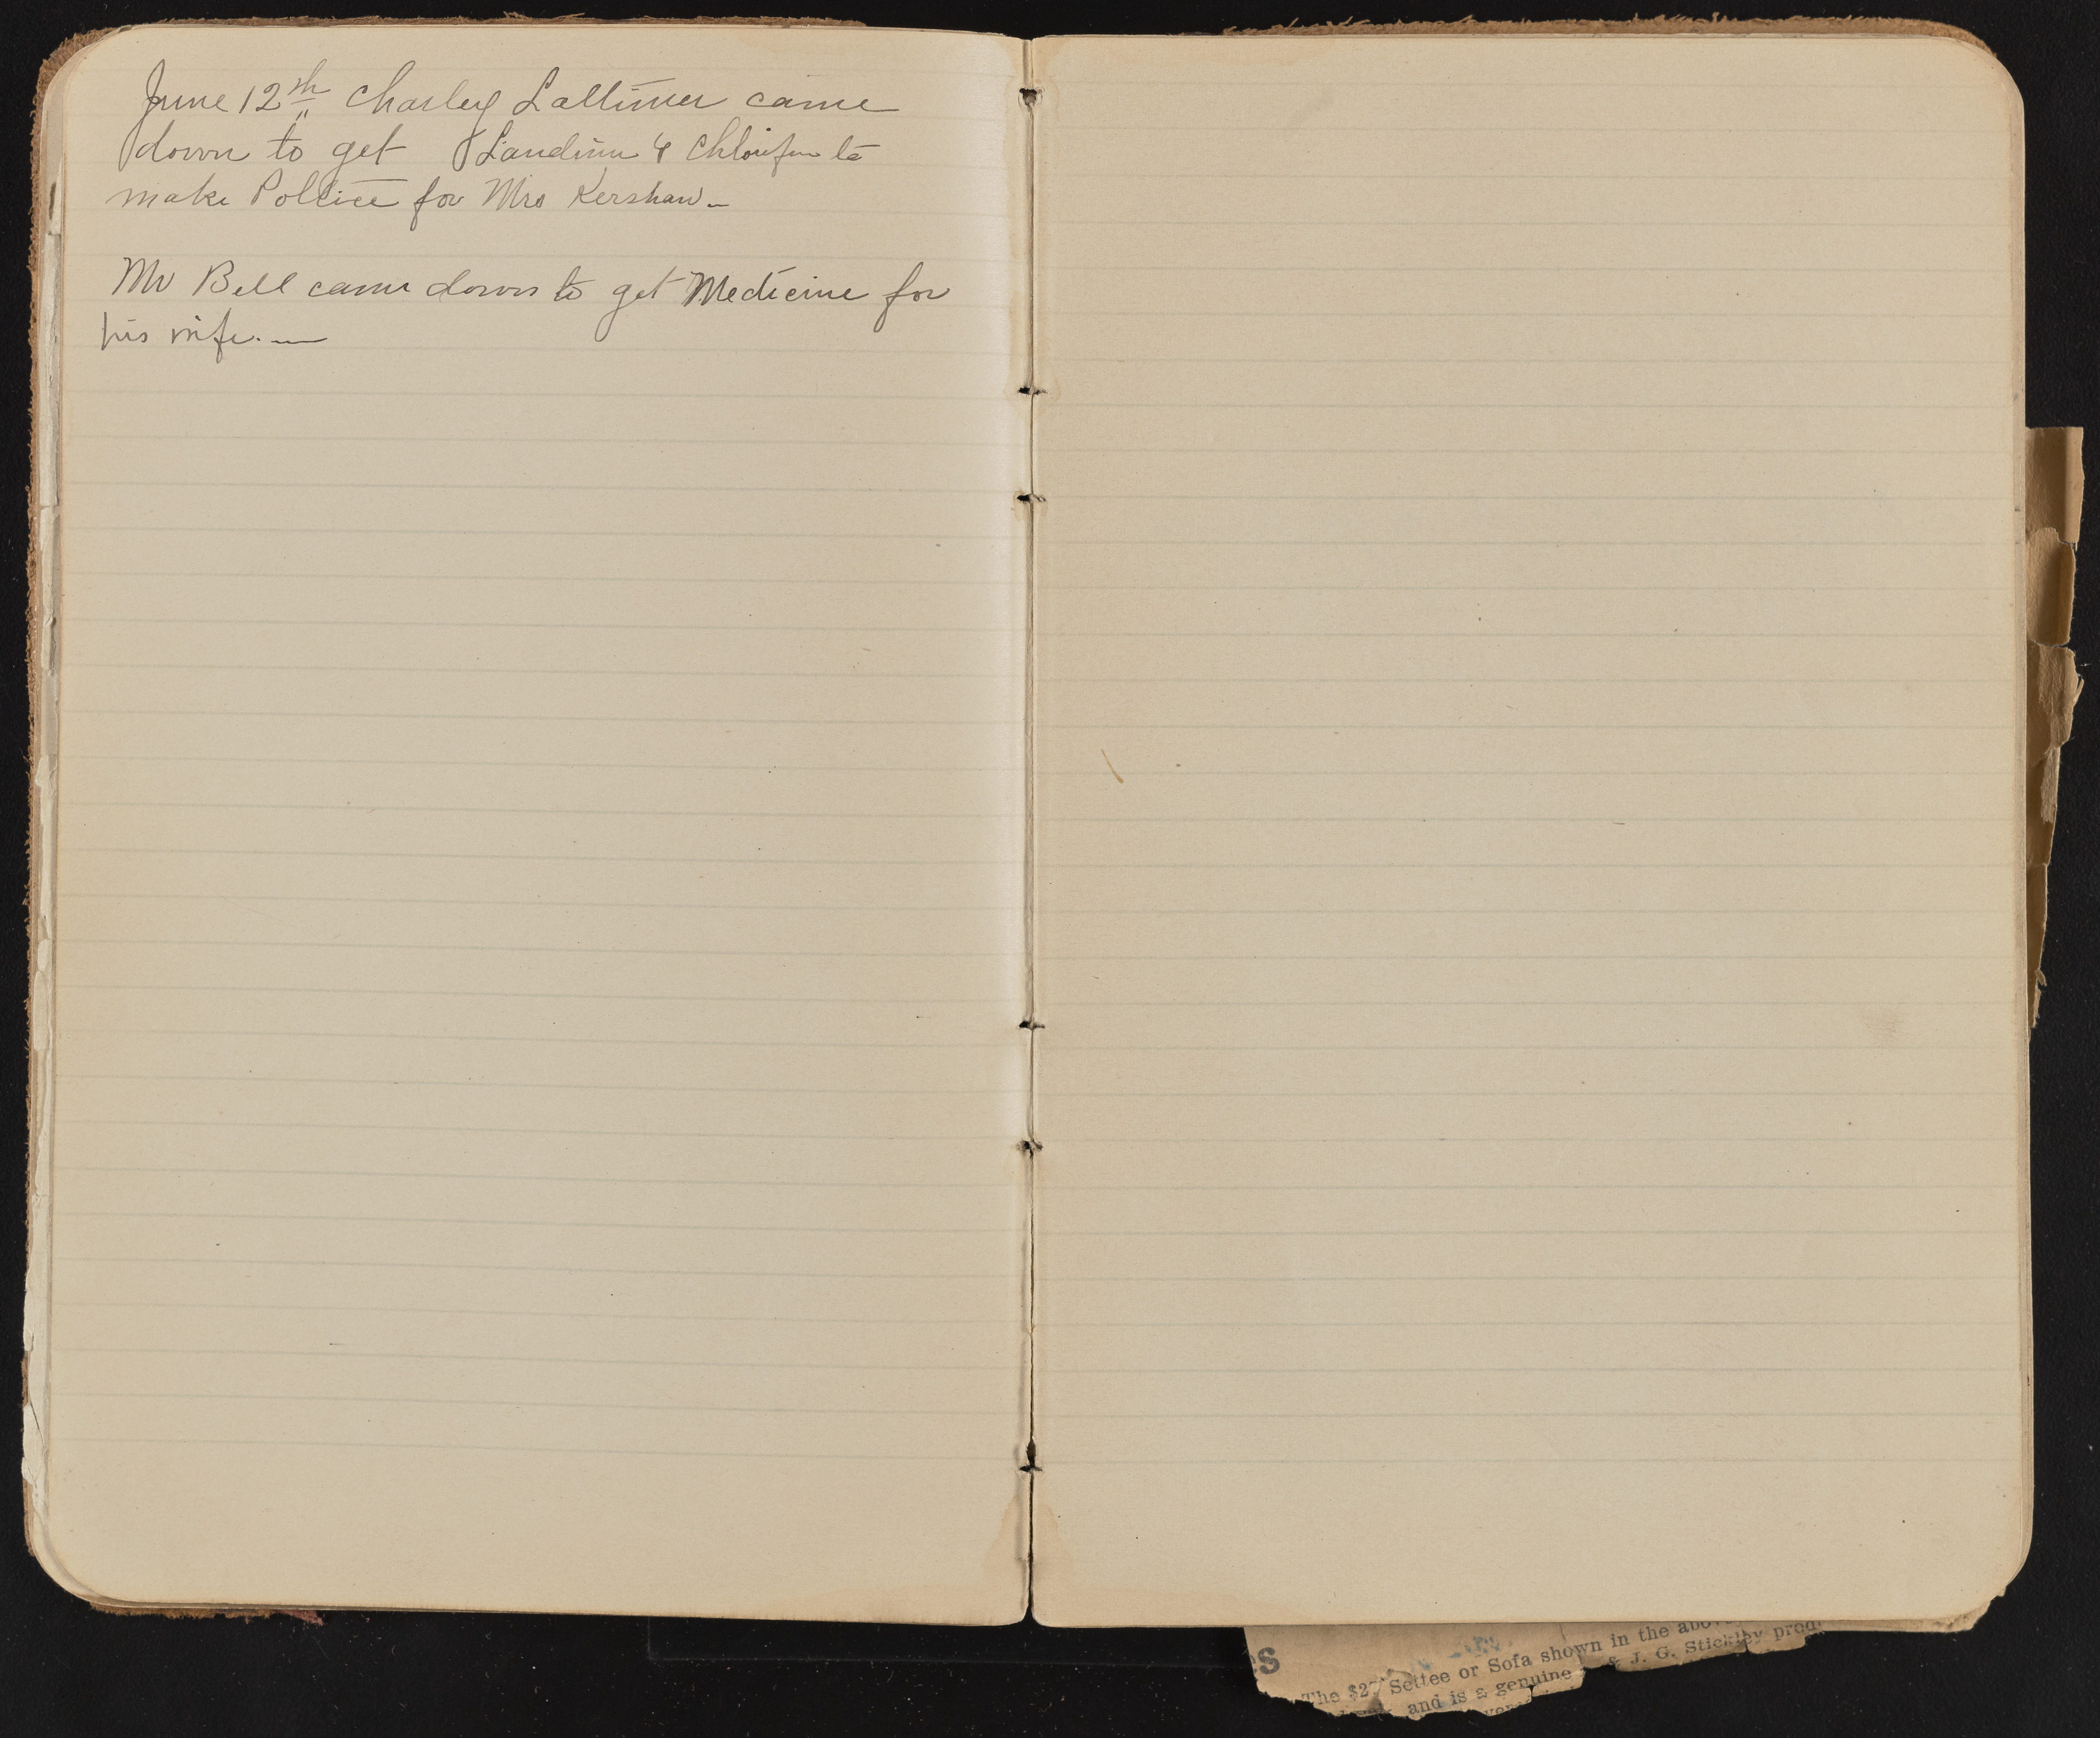 June 12th Charley Lattimer came
down to get Laudinum & Chlorifum to
make Poltice for Mrs Kershaw. —
Mr Bell came down to get Medicine for
his wife. —
The $27 Settee or Sofa shown in the above
and is a genuine & J. G. Stickley